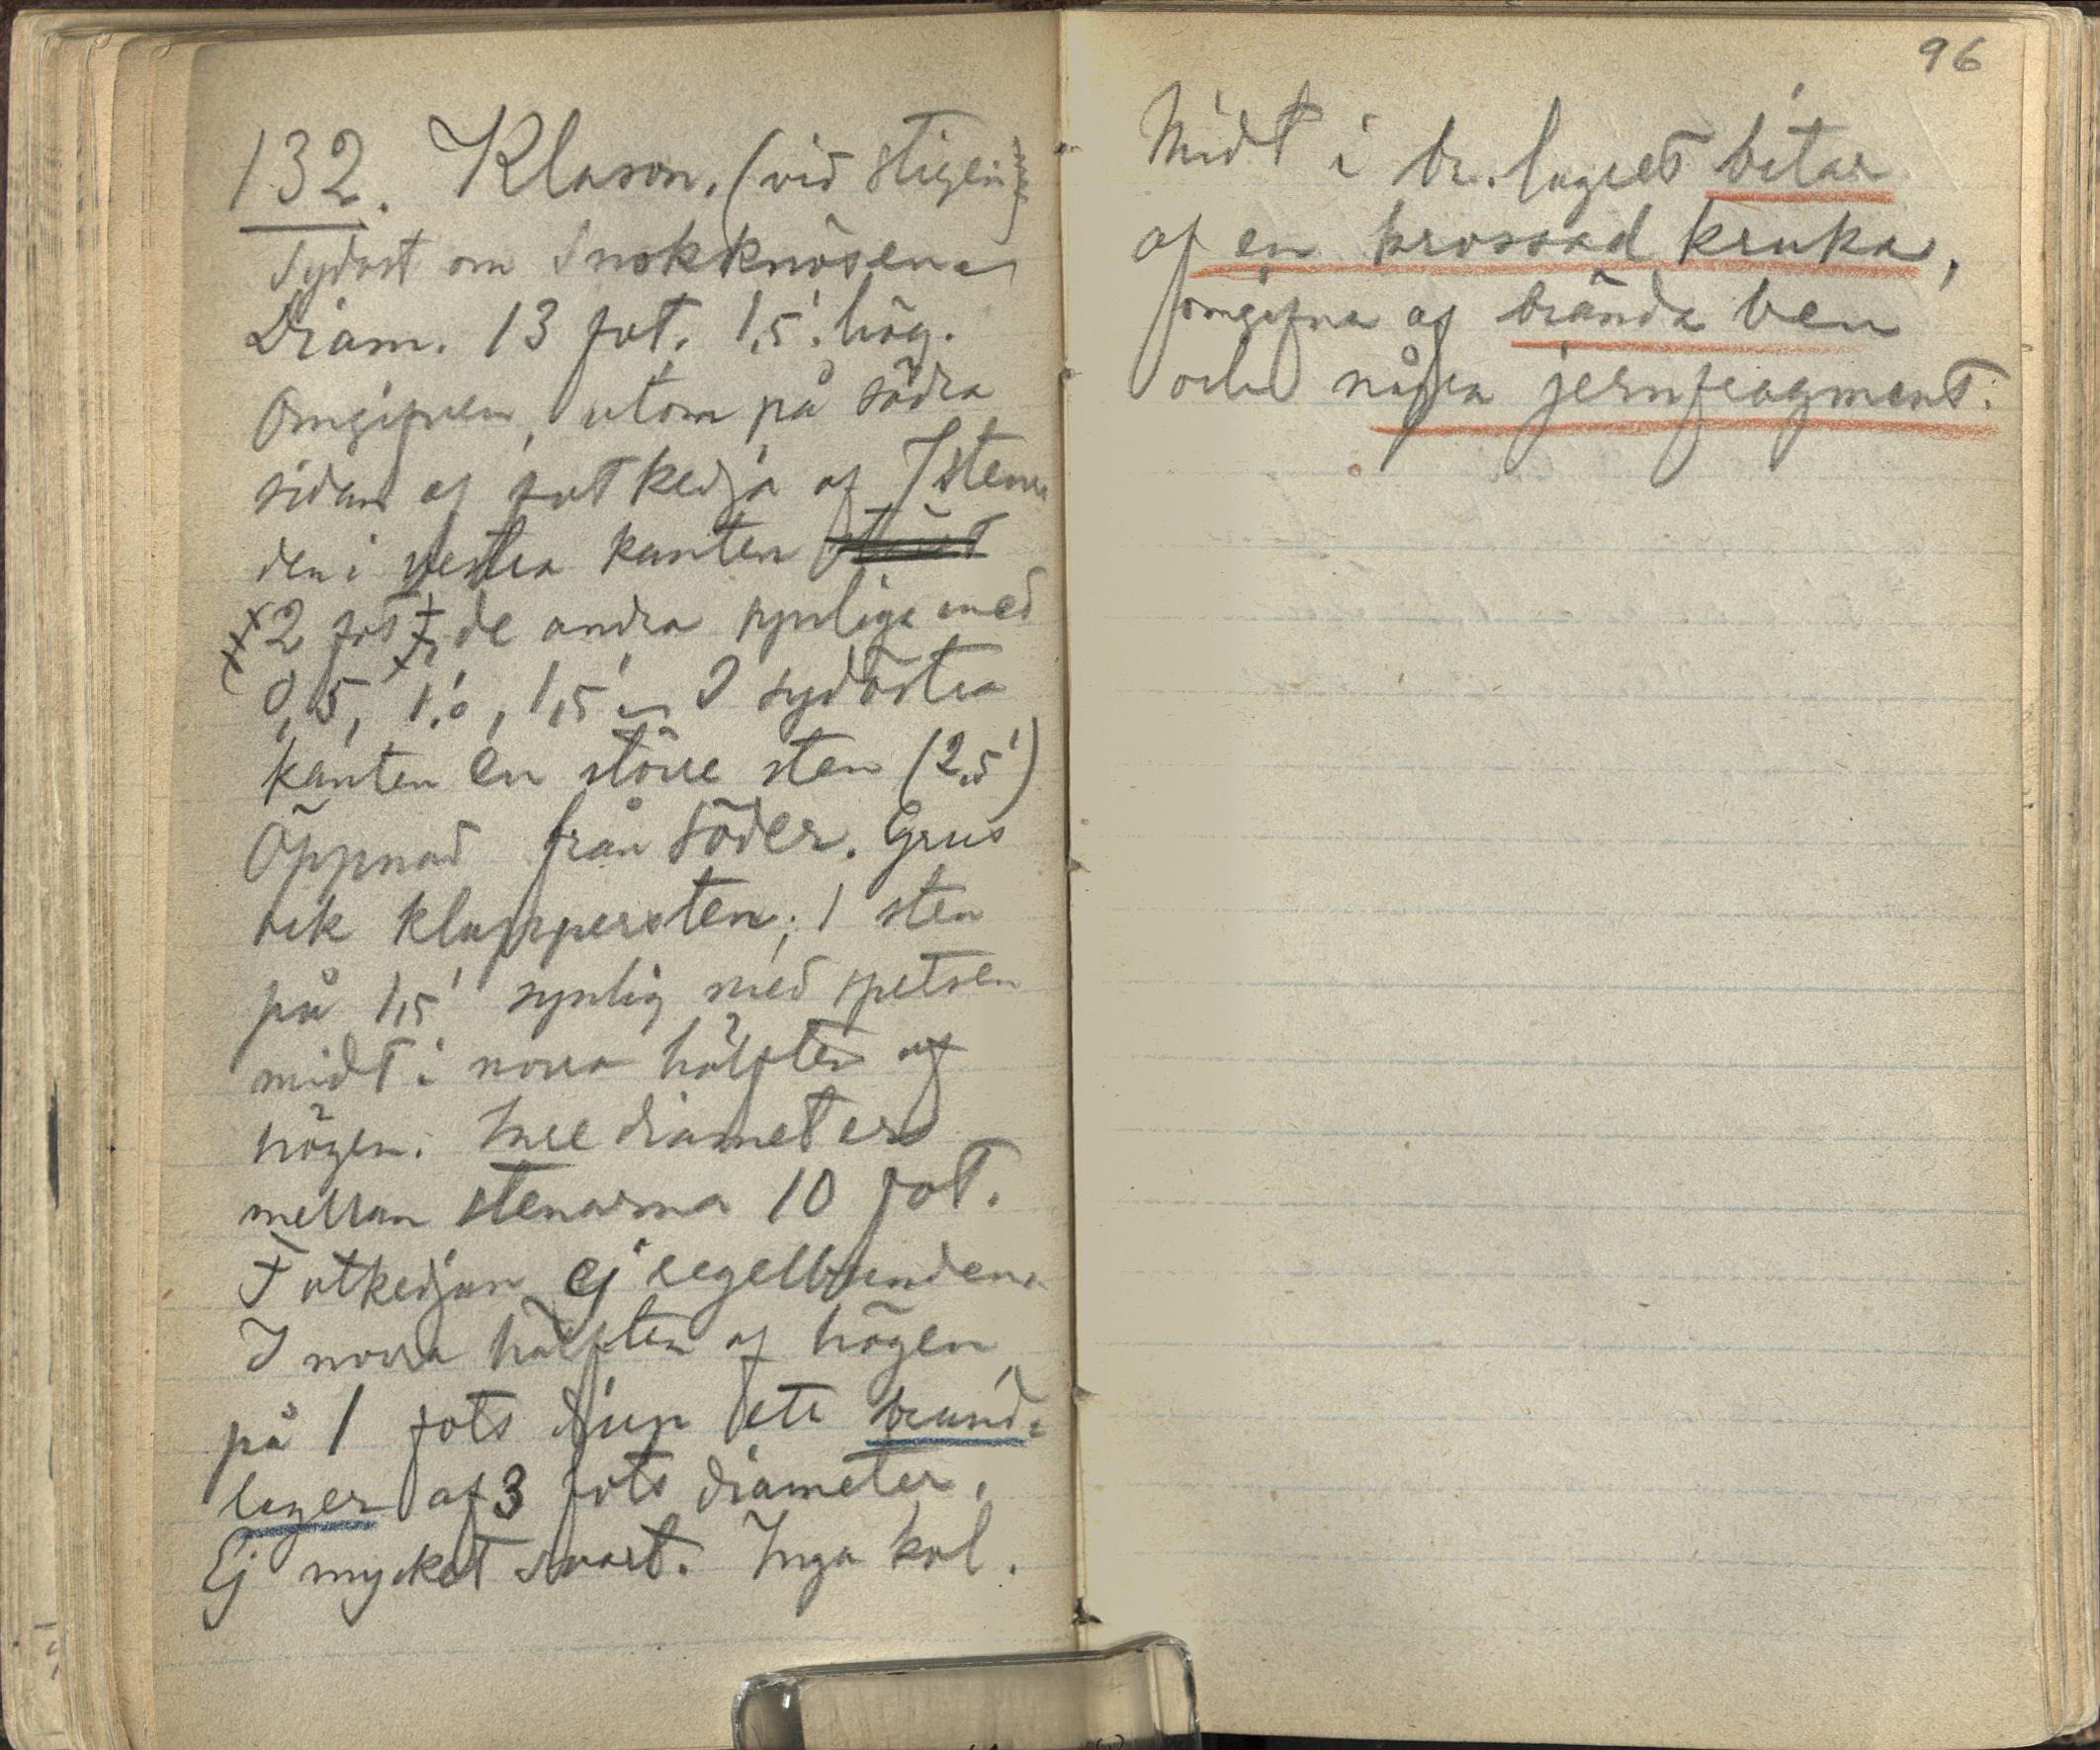 132. Klason. (vid stigen)
Sydost om Snokknösen
Diam. 13 fot. 1,5' hög.
Omgifven, utom på södra
sidan af fotkedja af 7 stenar
den i vestra kanten
2 fot, de andra synliga med
0,5', 1,0', 1,5'. I sydöstra
kanten en större sten (2,5')
Öppnad från söder. Grus
och klappersten; 1 sten
på 1,5' synlig med spetsen
midt i norra hälften af
högen. Inre diameter
mellan stenarna 10 fot.
Fotkedjan ej regelbunden.
I norra hälften af högen
på 1 fots djup ett brand-
lager af 3 fots diameter.
Ej mycket svart. Inga kol.
96
Midt i br. lagret bitar
af en krossad kruka,
omgifna af brända ben
och några jernfragment.